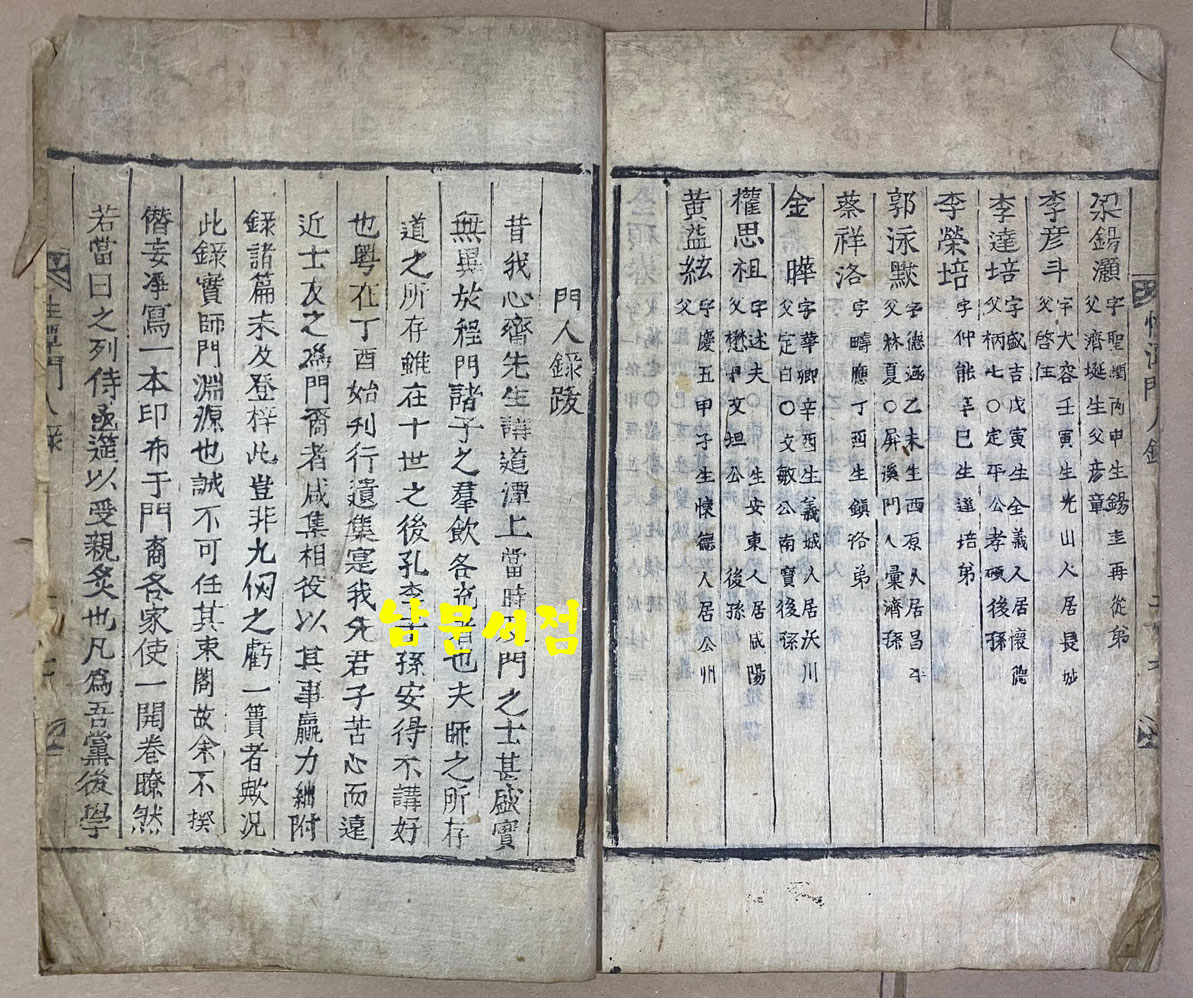 梁鍚灝 字聖 丙申生鍚圭再從弟
父濟埏生父彦章
李彦斗 字大容壬寅生光山人居長城
父啓
李達培 字盛吉戊寅生全義人居懷德
父柄七〇定平公孝碩後孫
李榮培 字仲能辛巳生達培弟
郭泳默 字德 乙未生西原人居昌平
父林夏〇屏溪門人彙濟孫
蔡祥洛 字疇應丁酉生鎭 弟
金曄 字華卿辛酉生義城人居沃川
父定白〇文敏公南寶後孫
權思祖 字述夫〇 生安東人居咸陽
父懋中文坦公 後孫
黃益鉉 字慶五甲子生懷德人居公州
父
性潭門人錄
門人錄跋
昔我心齋先生講道潭上當時 門之士甚盛實
無異於程門諸子之羣飮各充 也夫師之所存
道之所存雖在十世之後孔李 孫安得不講好
也粤在丁酉始刋行遺集寔我先君子苦心而遠
近士友之爲門裔者咸集相役以其事贏力絀附
錄諸篇未及登梓此豈非九仞之虧一簣者歟况
此錄實師門淵源也誠不可任其東閣故余不揆
僭妄淨寫一本印布于門裔各家使一開卷瞭然
若當日之列侍 筵以受親炙也凡爲吾黨後學
性潭門人錄
남문서점